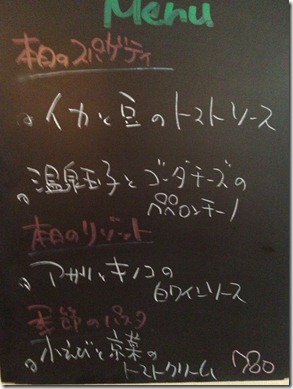 Menu
本日のスパゲティ
イカと豆のトマトソース
温泉玉子とゴーダチーズの
ペペロンチーノ
本日のリゾット
アサリとキノコの
白ワインソース
季節のパスタ
小えびと京菜の
トマトクリーム 780